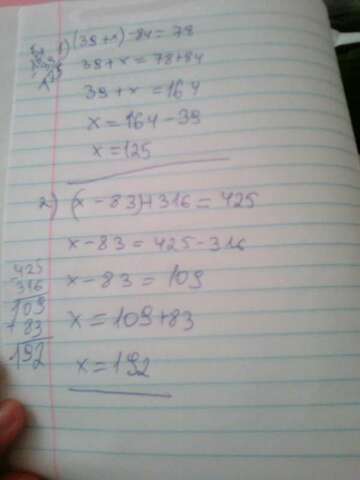 1) (39+x)-84=78
39+x=78+84
39+x=164
x=164-39
x=125
2) (x-83)+316=425
x-83=425-316
x-83=109
x=109+83
x=192
425
-316
109
+83
192